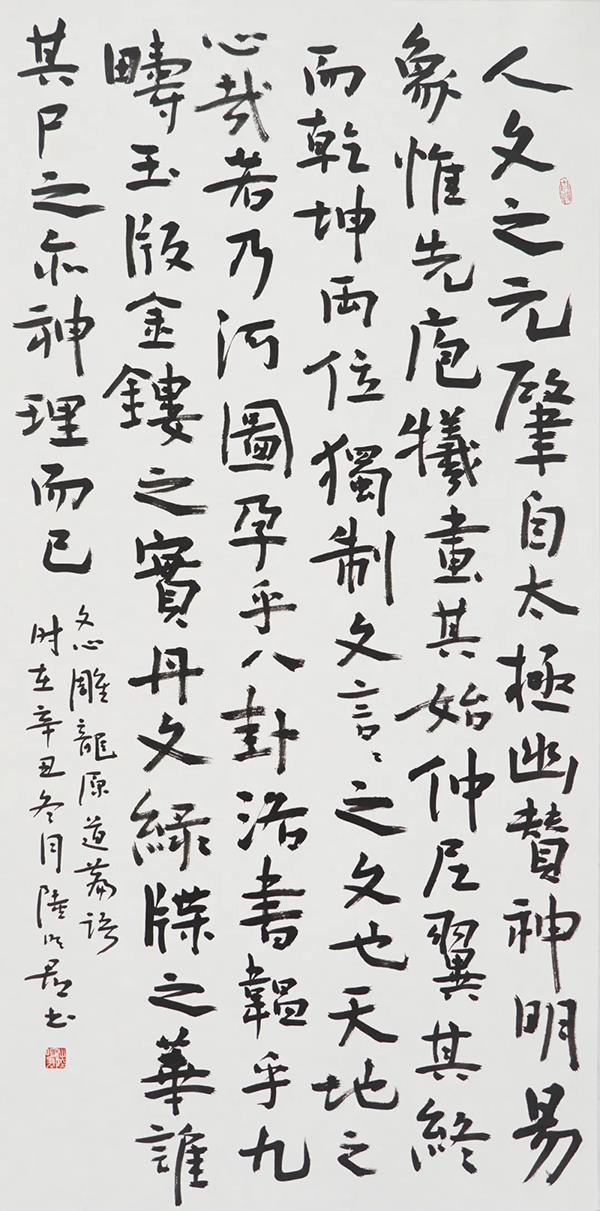 人文之元肇自太極幽贊神明易
象惟先庖犧畫其始仲尼翼其終
而乾坤両位獨制文言〻之文也天地之
心哉若乃河圖孕乎八卦洛書韞乎九
疇玉版金鏤之實丹文緑牒之華誰
其尸之亦神理而已
文心雕龍原道篇語
时在辛丑冬月陸明君书